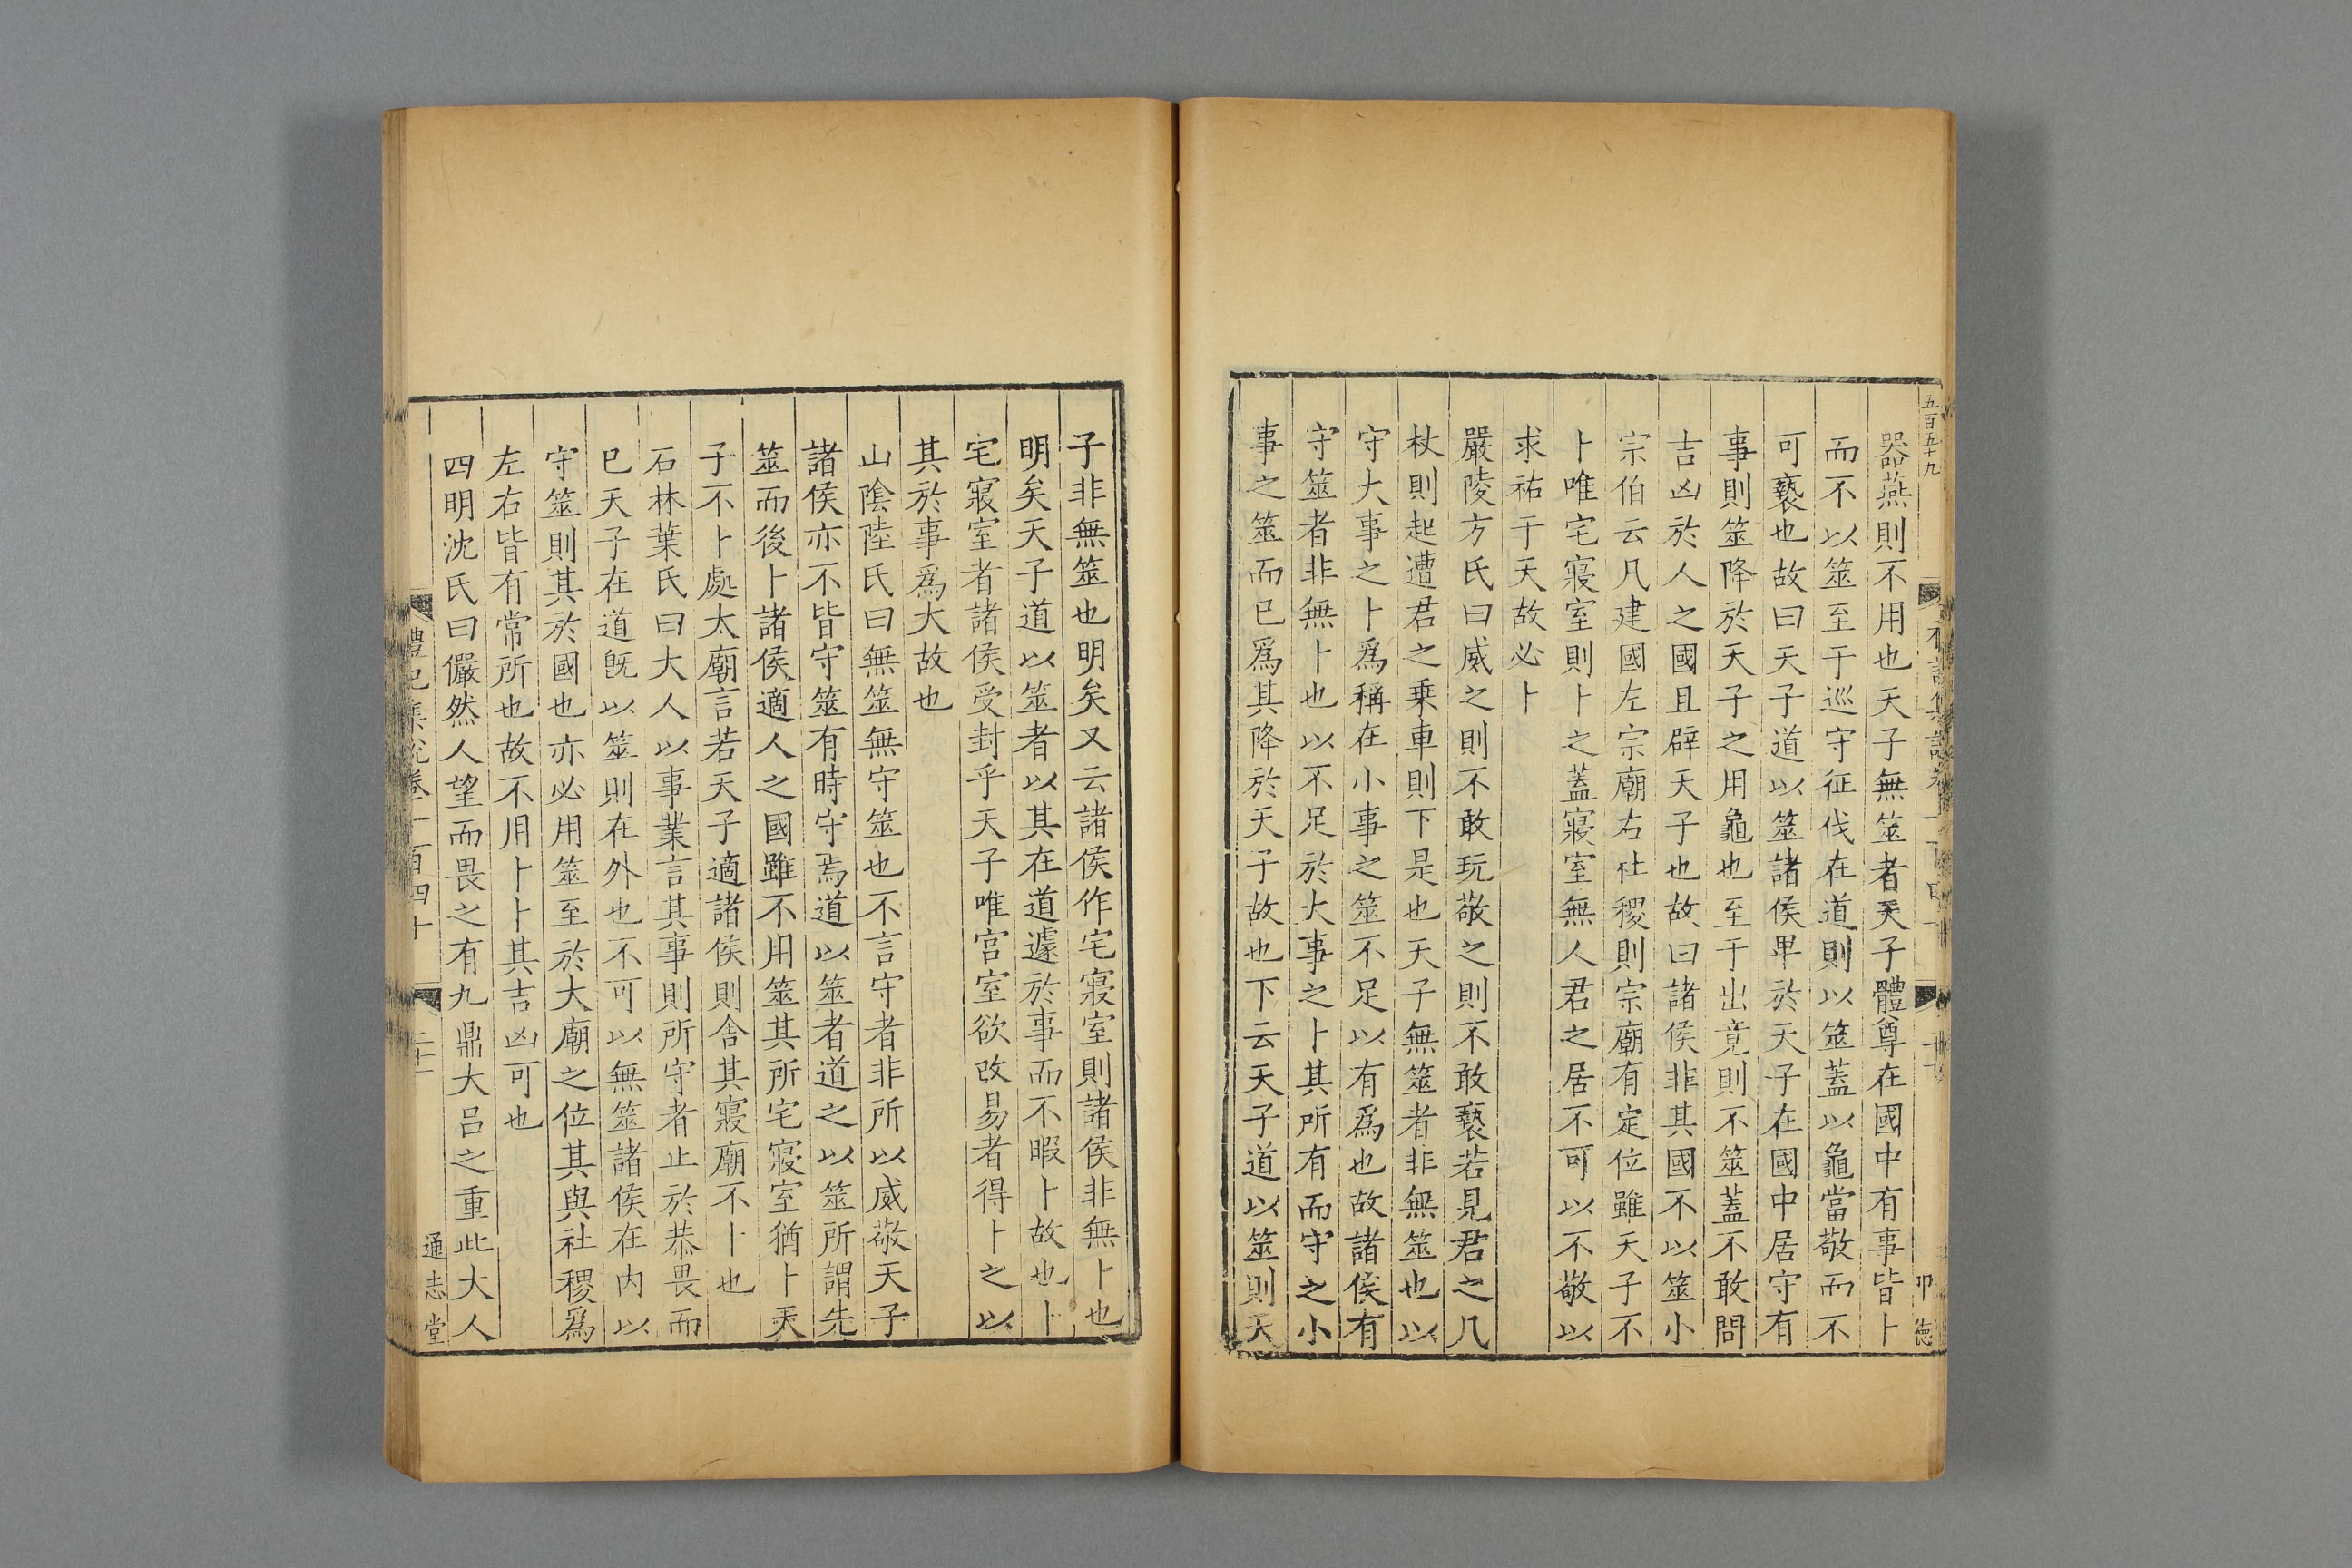 五百五十九
器燕則不用也天子無筮者天子體尊在國中有事皆卜
而不以筮至于巡守征伐在道則以筮蓋以龜當敬而不
可褻也故曰天子道以筮諸侯卑於天子在國中居守有
事則筮降於天子之用龜也至于出竟則不筮蓋不敢問
吉凶於人之國且辟天子也故曰諸侯非其國不以筮小
宗伯云凡建國左宗廟右社稷則宗廟有定位雖天子不
卜唯宅寢室則卜之蓋寢室無人君之居不可以不敬以
求祐于天故必卜
嚴陵方氏曰威之則不敢玩敬之則不敢褻若見君之几
杖則起遭君之乗車則下是也天子無筮者非無筮也以
守大事之卜爲稱在小事之筮不足以有爲也故諸侯有
守筮者非無卜也以不足於大事之卜其所有而守之小
事之筮而已爲其降於天子故也下云天子道以筮則天
子非無筮也明矣又云諸侯作宅寢室則諸侯非無卜也
明矣天子道以筮者以其在道遽於事而不暇卜故也卜
宅寢室者諸侯受封乎天子唯宫室欲改易者得卜之以
其於事爲大故也
山陰陸氏曰無筮無守筮也不言守者非所以威敬天子
諸侯亦不皆守筮有時守焉道以筮者道之以筮所謂先
筮而後卜諸侯適人之國雖不用筮其所宅寢室猶卜天
子不卜處太廟言若天子適諸侯則舎其寢廟不卜也
石林葉氏曰大人以事業言其事則所守者止於恭畏而
已天子在道旣以筮則在外也不可以無筮諸侯在内以
守筮則其於國也亦必用筮至於大廟之位其與社稷爲
左右皆有常所也故不用卜卜其吉凶可也
四明沈氏曰儼然人望而畏之有九鼎大吕之重此大人
禮記集說卷一百四十
通志堂